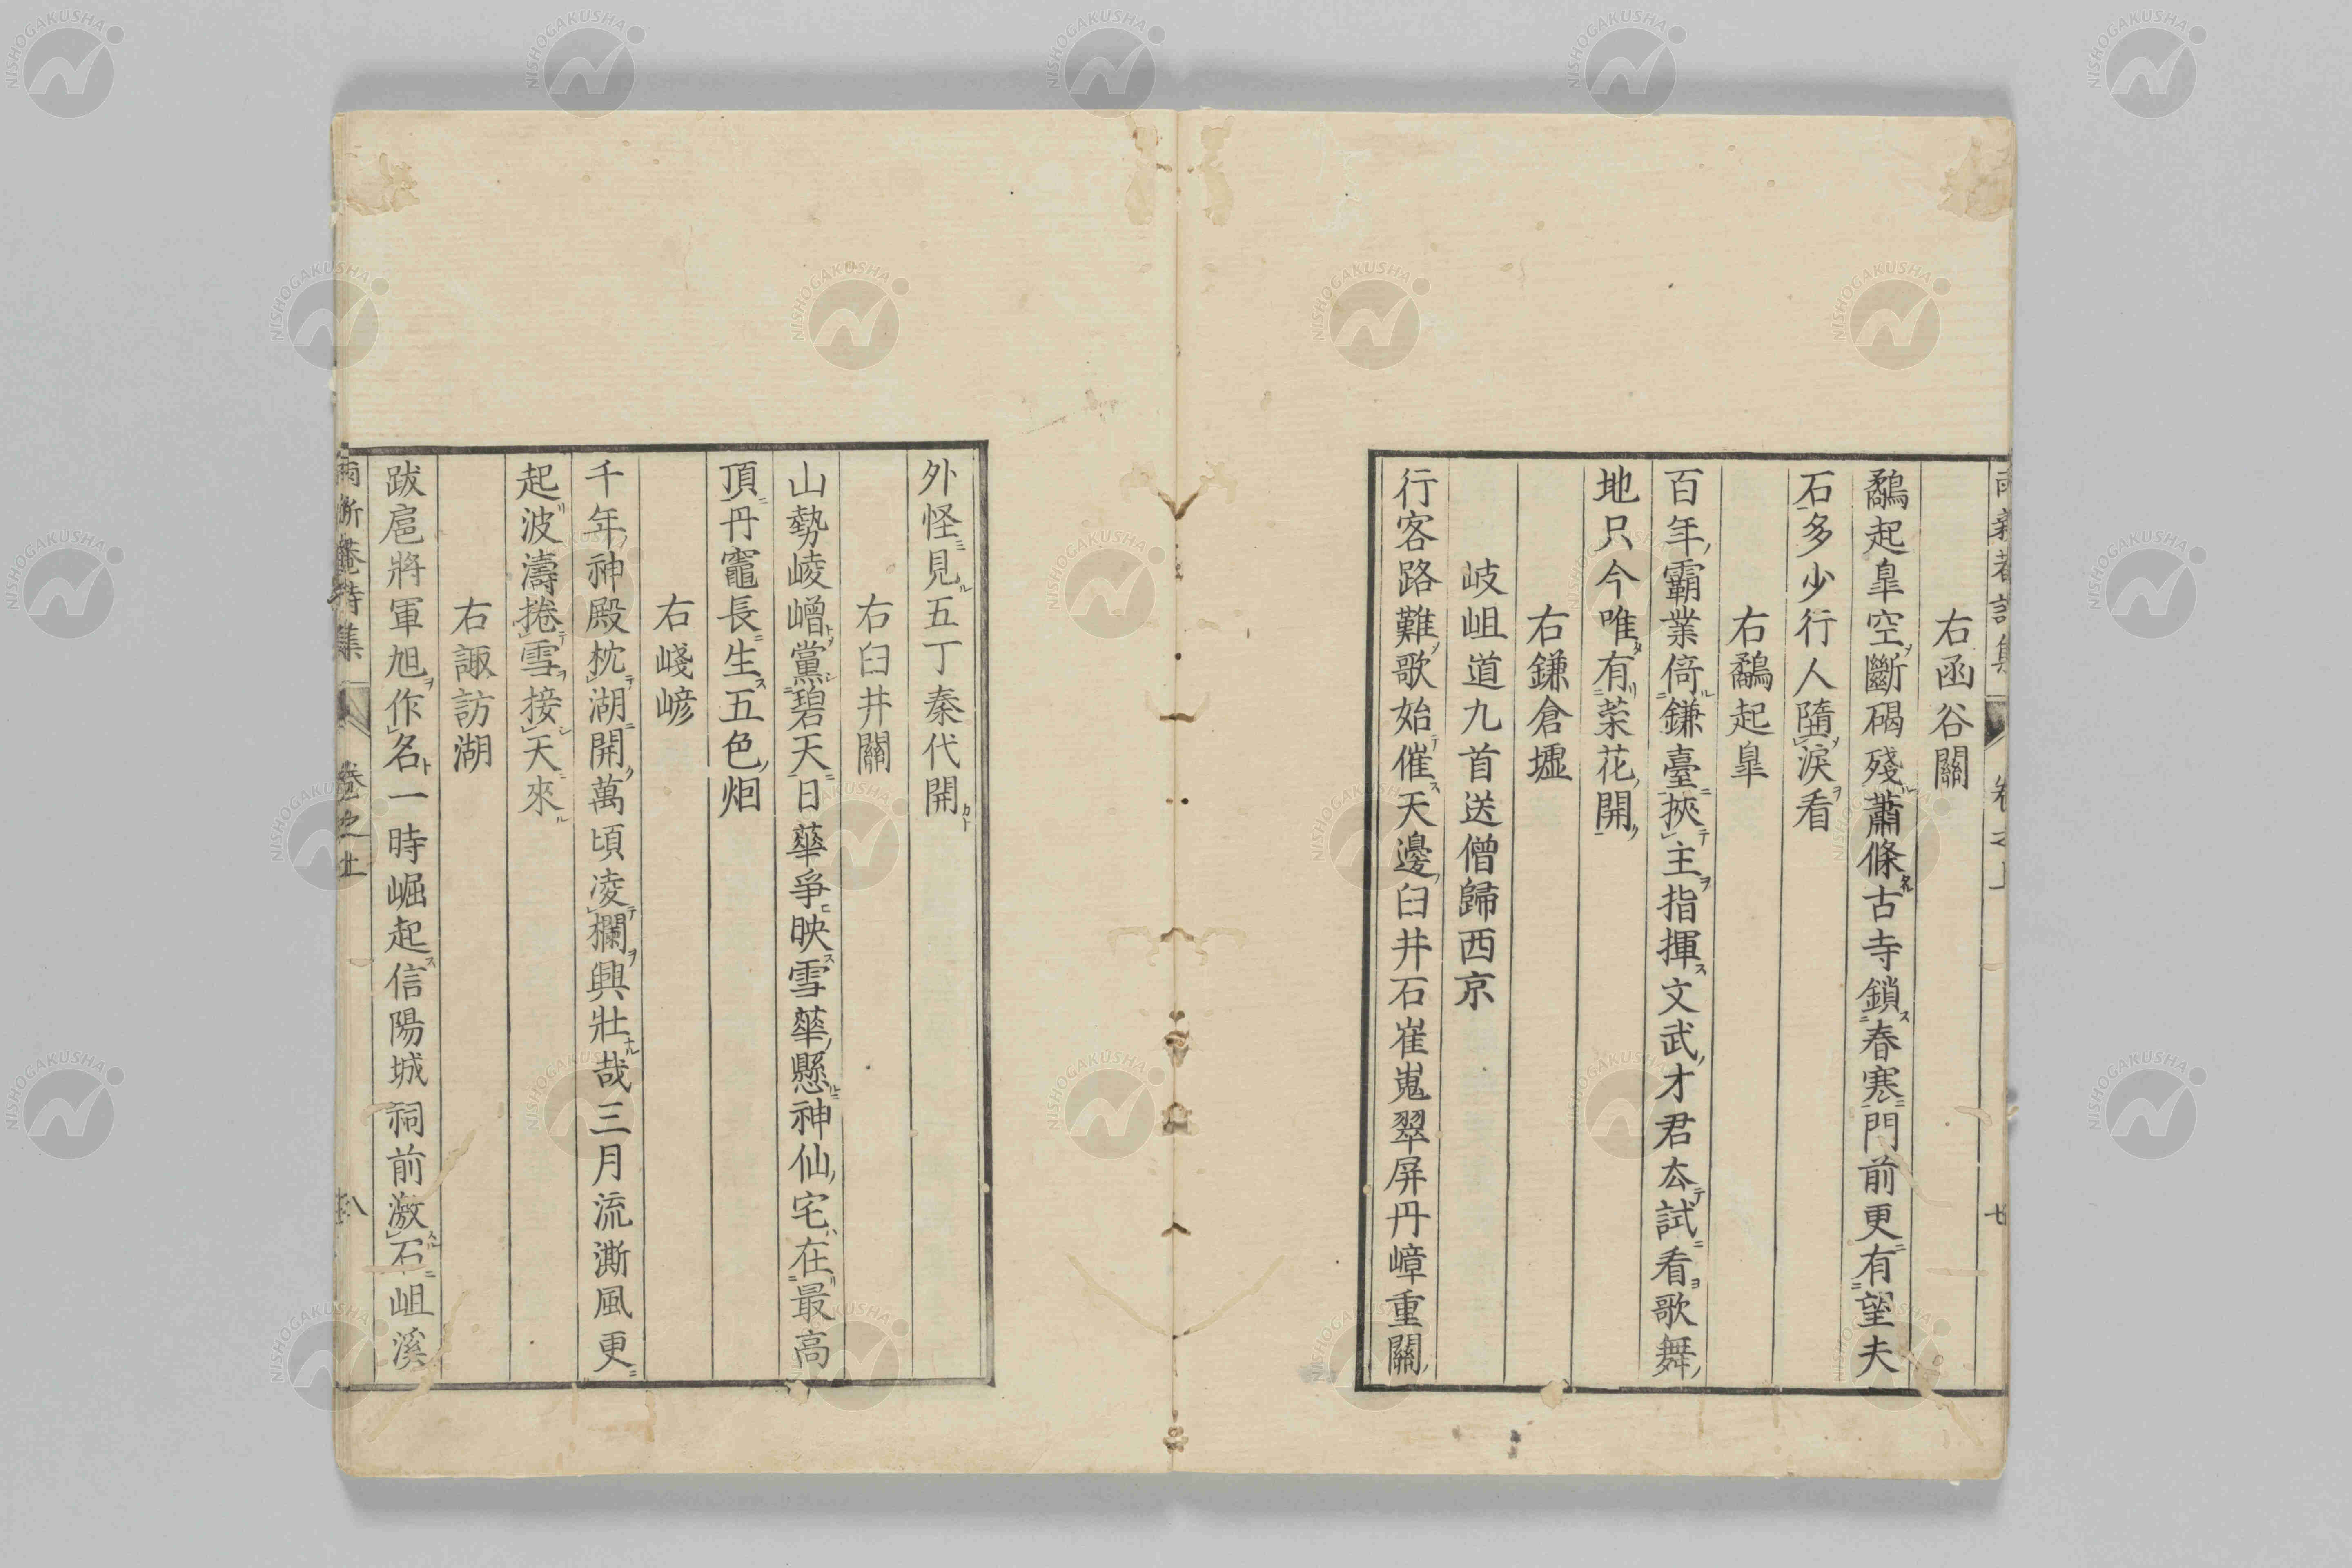 右函谷關
鷸起皐空斷碣殘蕭條古寺鎖春寒門前更有望夫
石多少行人墮淚看
右鷸起皐
百年霸業倚鎌臺挾主指揮文武才君厺試看歌舞
地只今唯有荣花開
右鎌倉墟
岐岨道九首送僧歸西京
行客路難歌始催天邊臼井石崔嵬翠屏丹嶂重關
外怪見五丁秦代開
右臼井關
山勢崚嶒黨碧天日華爭映雪華懸神仙宅在最高
頂丹竈長生五色烟
右嶘嵃
千年神殿枕湖開萬頃凌欄興壯哉三月流澌風更
起波濤捲雪接天來
右諏訪湖
跋扈將軍旭作名一時崛起信陽城祠前激石岨溪
雨新菴詩集 卷之上
NISHOGAKUSHA